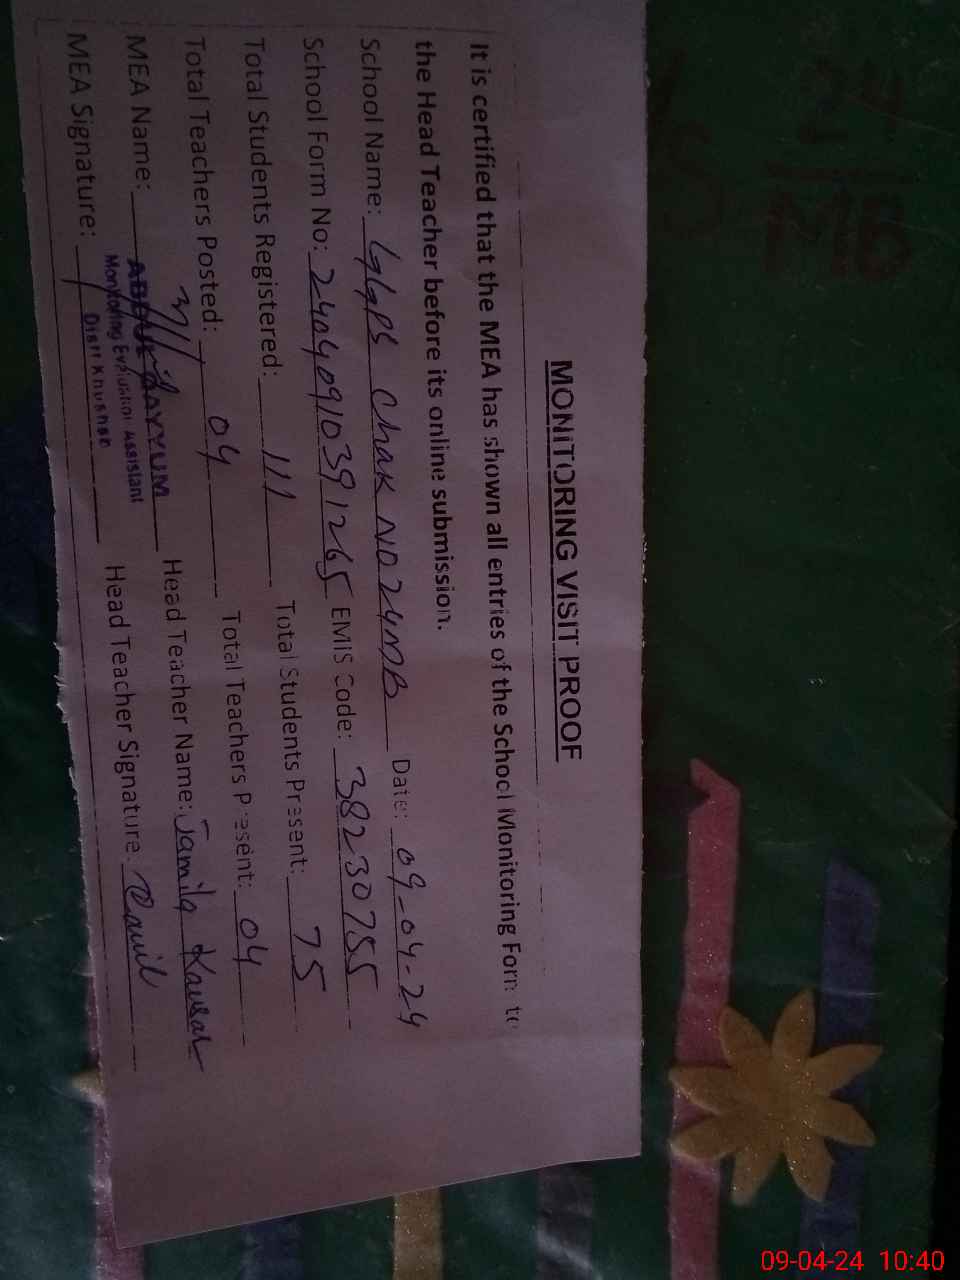 MONITORING VISIT PROOF
It is certified that the MEA has shown all entries of the School Monitoring Form to
the Head Teacher before its online submission.
School Name: GGPS Chak NO 24MB Date: 09-04-24
School Form No: 24040910391265 EMIS Code: 38230755
Total Students Registered: 111 Total Students Present: 75
Total Teachers Posted: 04 Total Teachers Present: 04
MEA Name: ABDUL QAYYUM Head Teacher Name: Jamila Kausar
Monitoring Evaluation Assistant
MEA Signature: Distt Khushab Head Teacher Signature:
24
MB
09-04-24 10:40